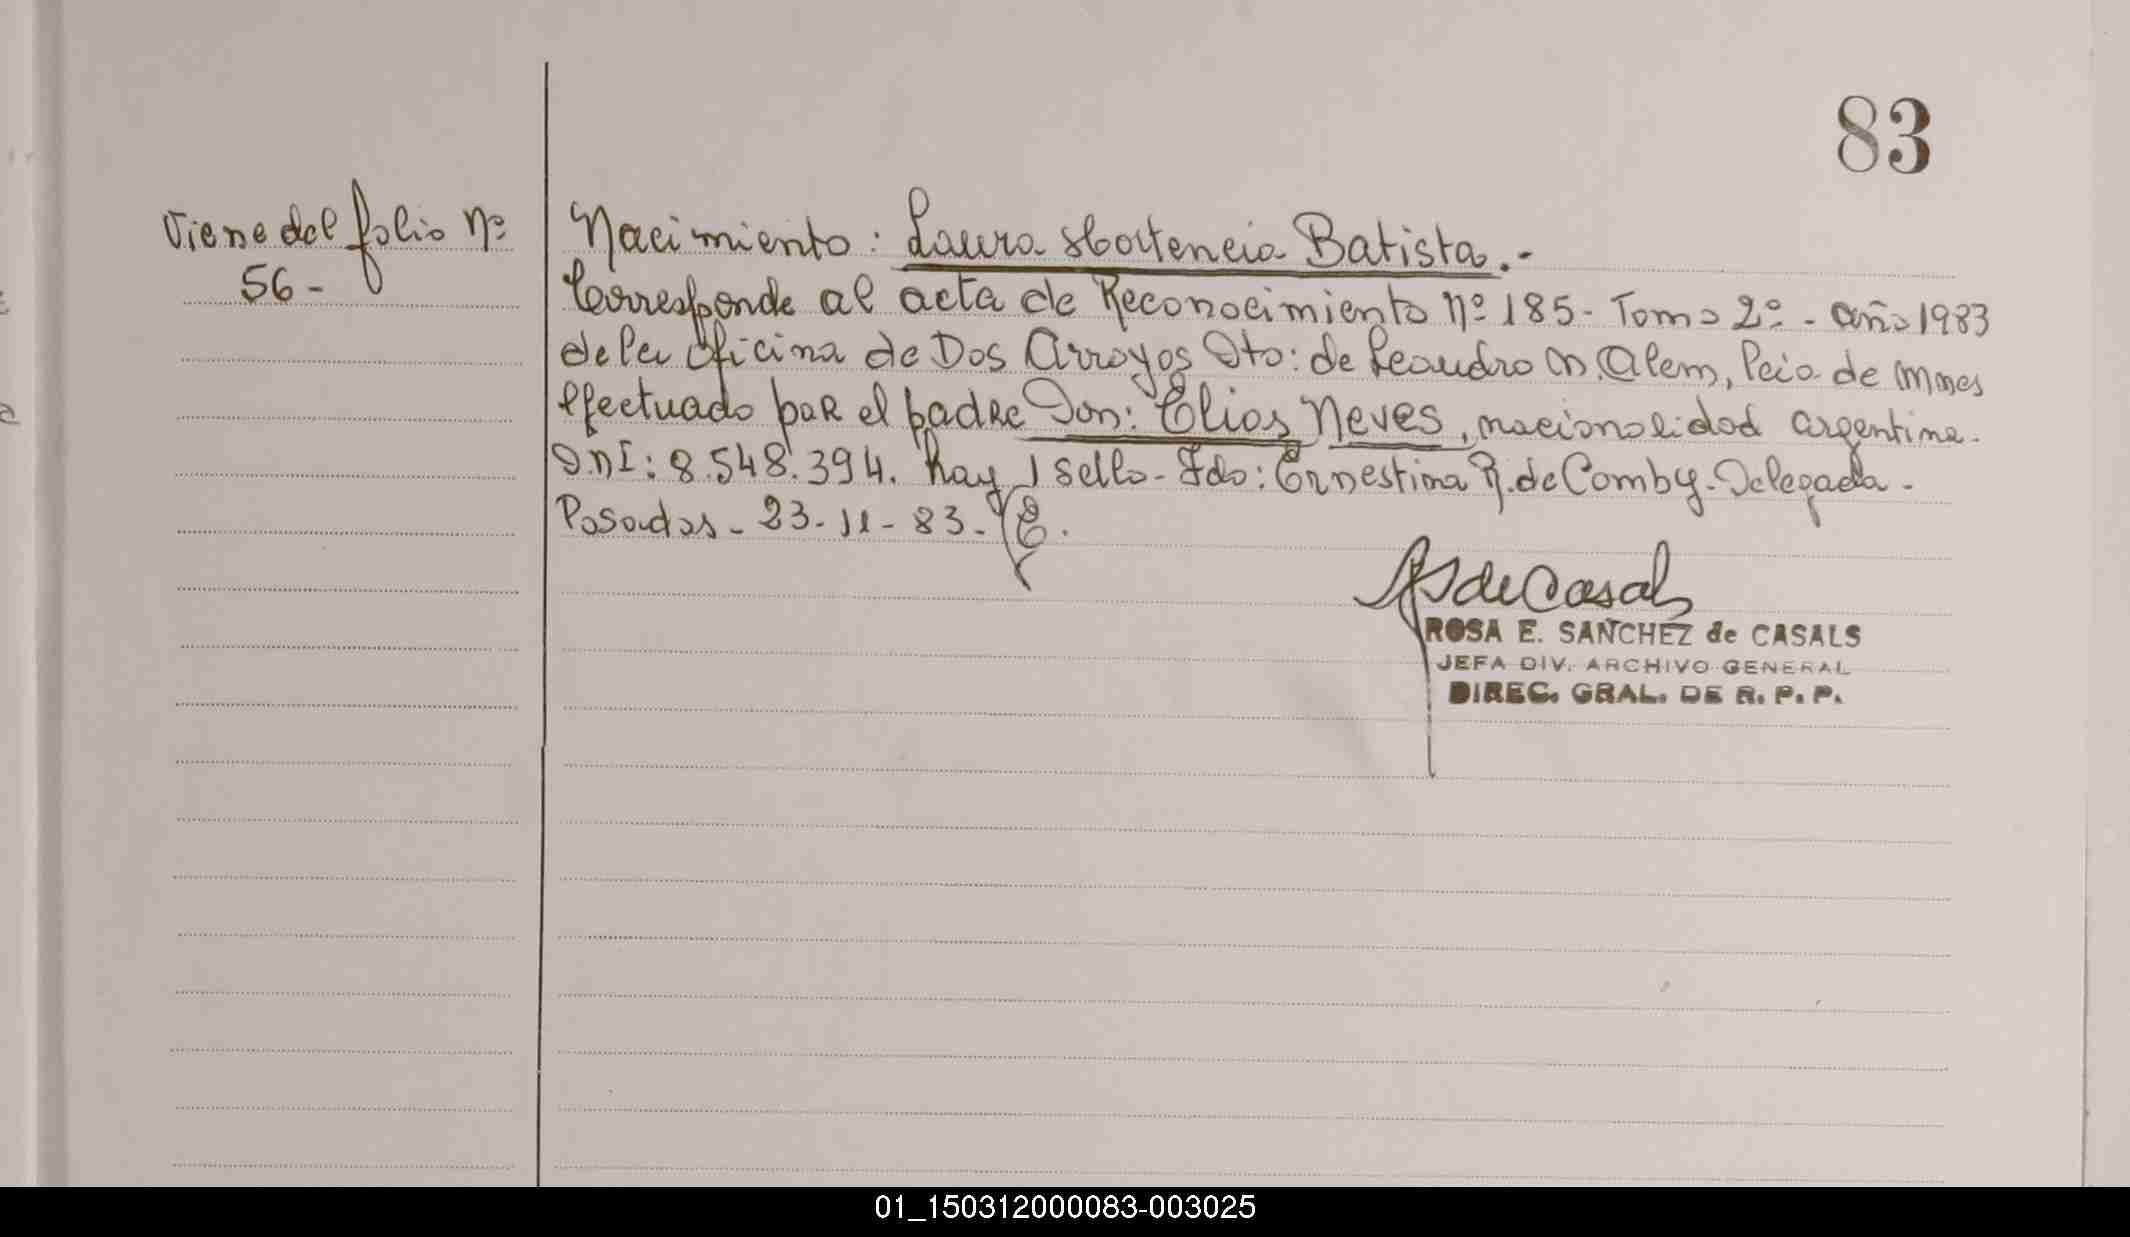 83
Viene del folio Nº
56-
Nacimiento: Laura Hortencia Batista.-
Corresponde al acta de Reconocimiento Nº 185- Tomo 2º- año 1983
de la Oficina de Dos Arroyos Dto: de Leandro N. Alem, Pcia de Mnes
efectuado por el padre Don: Elias Neves, nacionalidad argentina.
D.N I: 8.548.394. hay 1 sello- Fdo: Ernestina R. de Comby-Delegada-
Posadas- 23-11-83-
ROSA E. SANCHEZ de CASALS
JEFA DIV. ARCHIVO GENERAL
DIREC. GRAL. DE R. P. P.
01_150312000083-003025